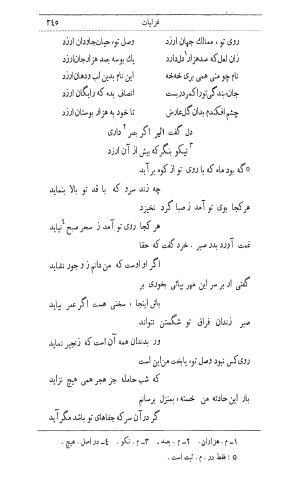 غزلیات ۳۴۵
روی تو ، ممالک جهان ارزد وصل تو ، حیات جاودان ارزد
زان لعل که صد هزار ۱ دل دارد یک بوسه بصد هزار جان ارزد
نام چو منی همی بری خه‌خه این نام بدین لب و دهان ارزد
جان بندگی ترا کمر در بست انصاف بده که رایگان ارزد
چشم افکندم بدان گل عارض تا خود به هزار بوستان ارزد
دل گفت اثیر اگر بصر ۲ داری
۳ نیکو بنگر که بیش از آن ارزد
۵ گه بود ماه که با روی تو از کوه بر آید
چه زند سرو که با قد تو بالا بنماید
هر کجا بوی تو آمد ز صبا گرد نخیزد
هر کجا روی تو آمد ز سحر صبح ۴ نیاید
غمت آورد بدر صبر . خرد گفت که حقا
اگر او اوست که من دانم ز و جود نفاید
گفتی از بر سر این مهر بیائی بخوری بر
باش اینجا ، سخنی هست اگر عمر بیاید
صبر زندان فراق تو شکستن نتواند
ور بدندان همه آن است که زنجیر نماید
روی کس نبود وصل تو ، یا بخت من این است
که شب حامله جز هجر همی هیچ نزاید
باز این حادثه من خسته ، بمنزل برسانم
گر در آن سر که جفاهای تو باشد مگر آید
۱ـ م . هزاران . ۲ـ م . بصد . ۳ـ م . نکو . ۴ـ در اصل . هیچ .
۵ : فقط در . م . ثبت است .